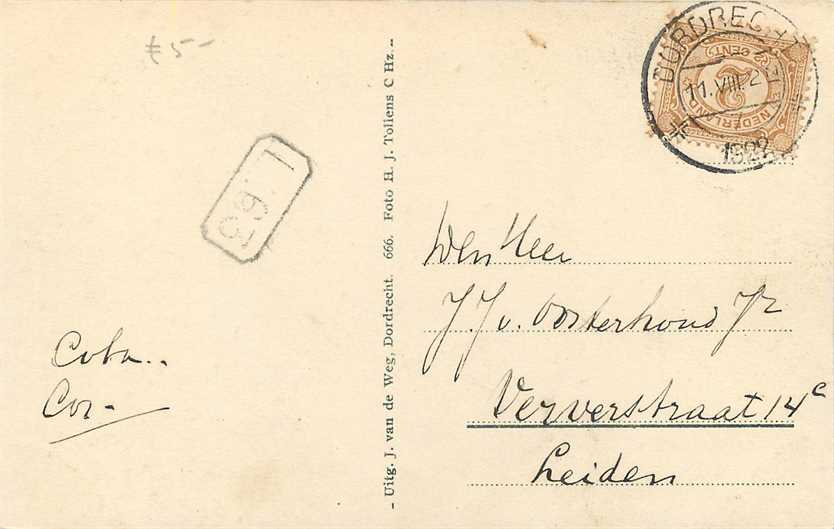 f 5-
DORDRECHT
11.VIII.2
1922
2½ CENT
NEDERLAND
I.63
- Uitg. J. van de Weg, Dordrecht. 666. Foto H. J. Tollens C Hz. -
Coba..
Cor-
Den Heer
J. J. v. Oosterhoud Jr
Ververstraat 14c
Leiden